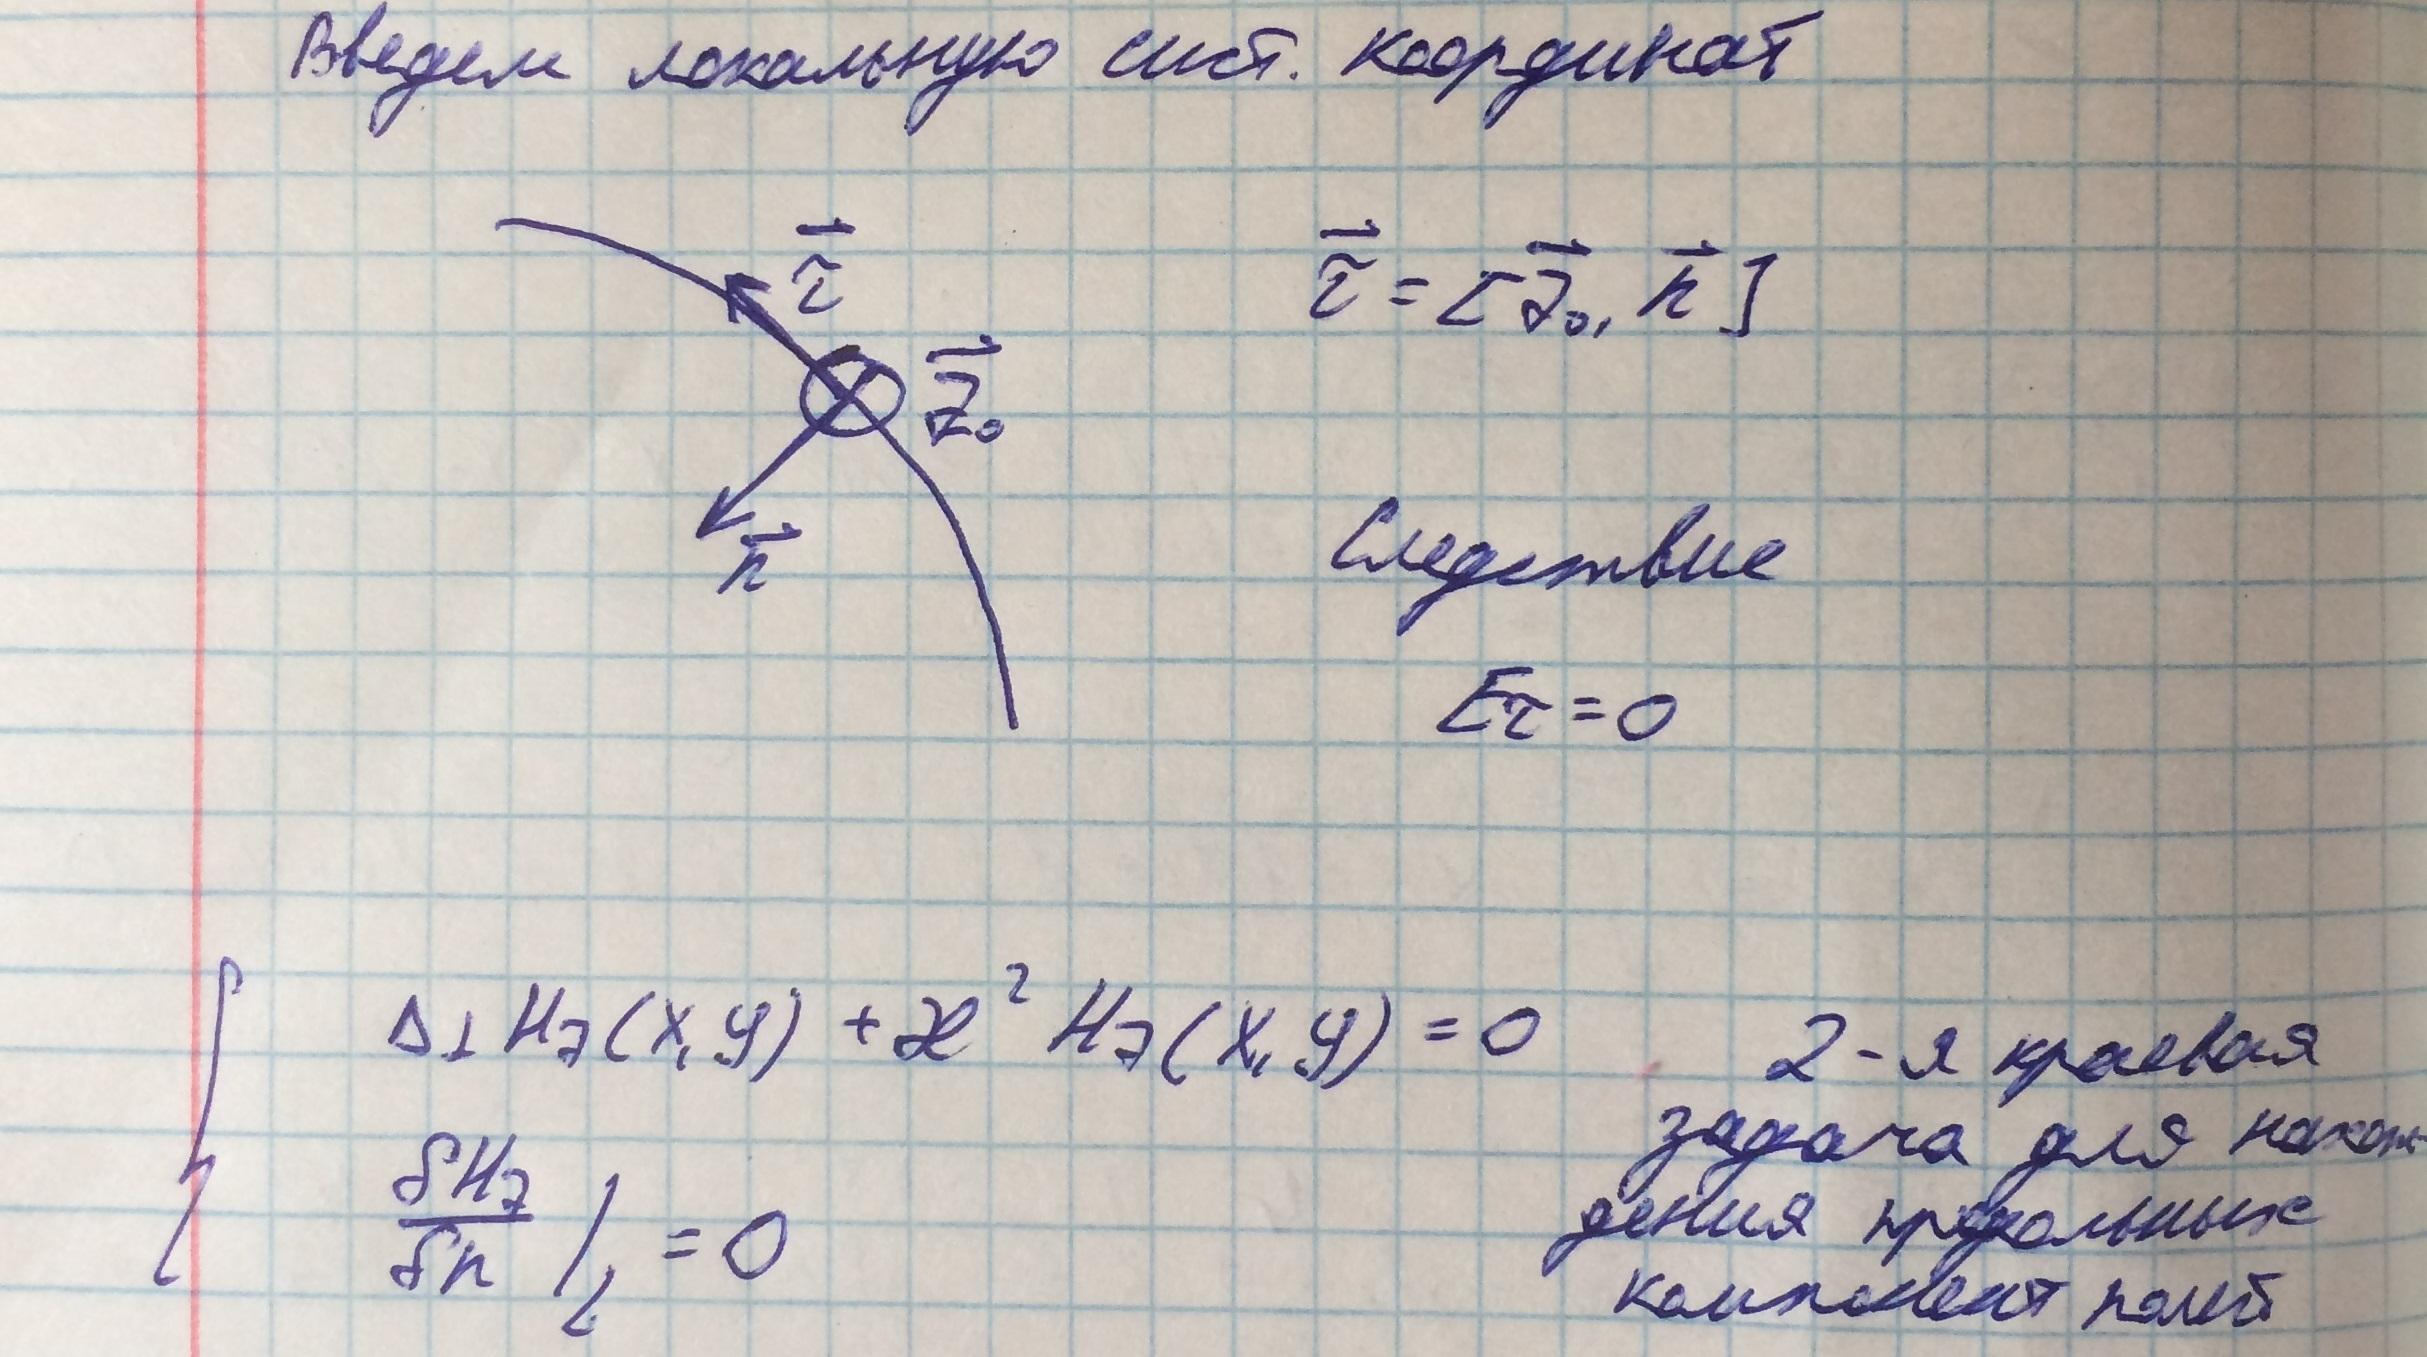 Введем локальную сист. координат
τ⃗
τ⃗ = [z⃗₀, n⃗]
z⃗₀
n⃗
Следствие
Eτ = 0
Δ⊥ Hz(x,y) + æ² Hz(x,y) = 0
δHz/δn |L = 0
2-я краевая
задача для нахож-
дения продольных
компонент полей